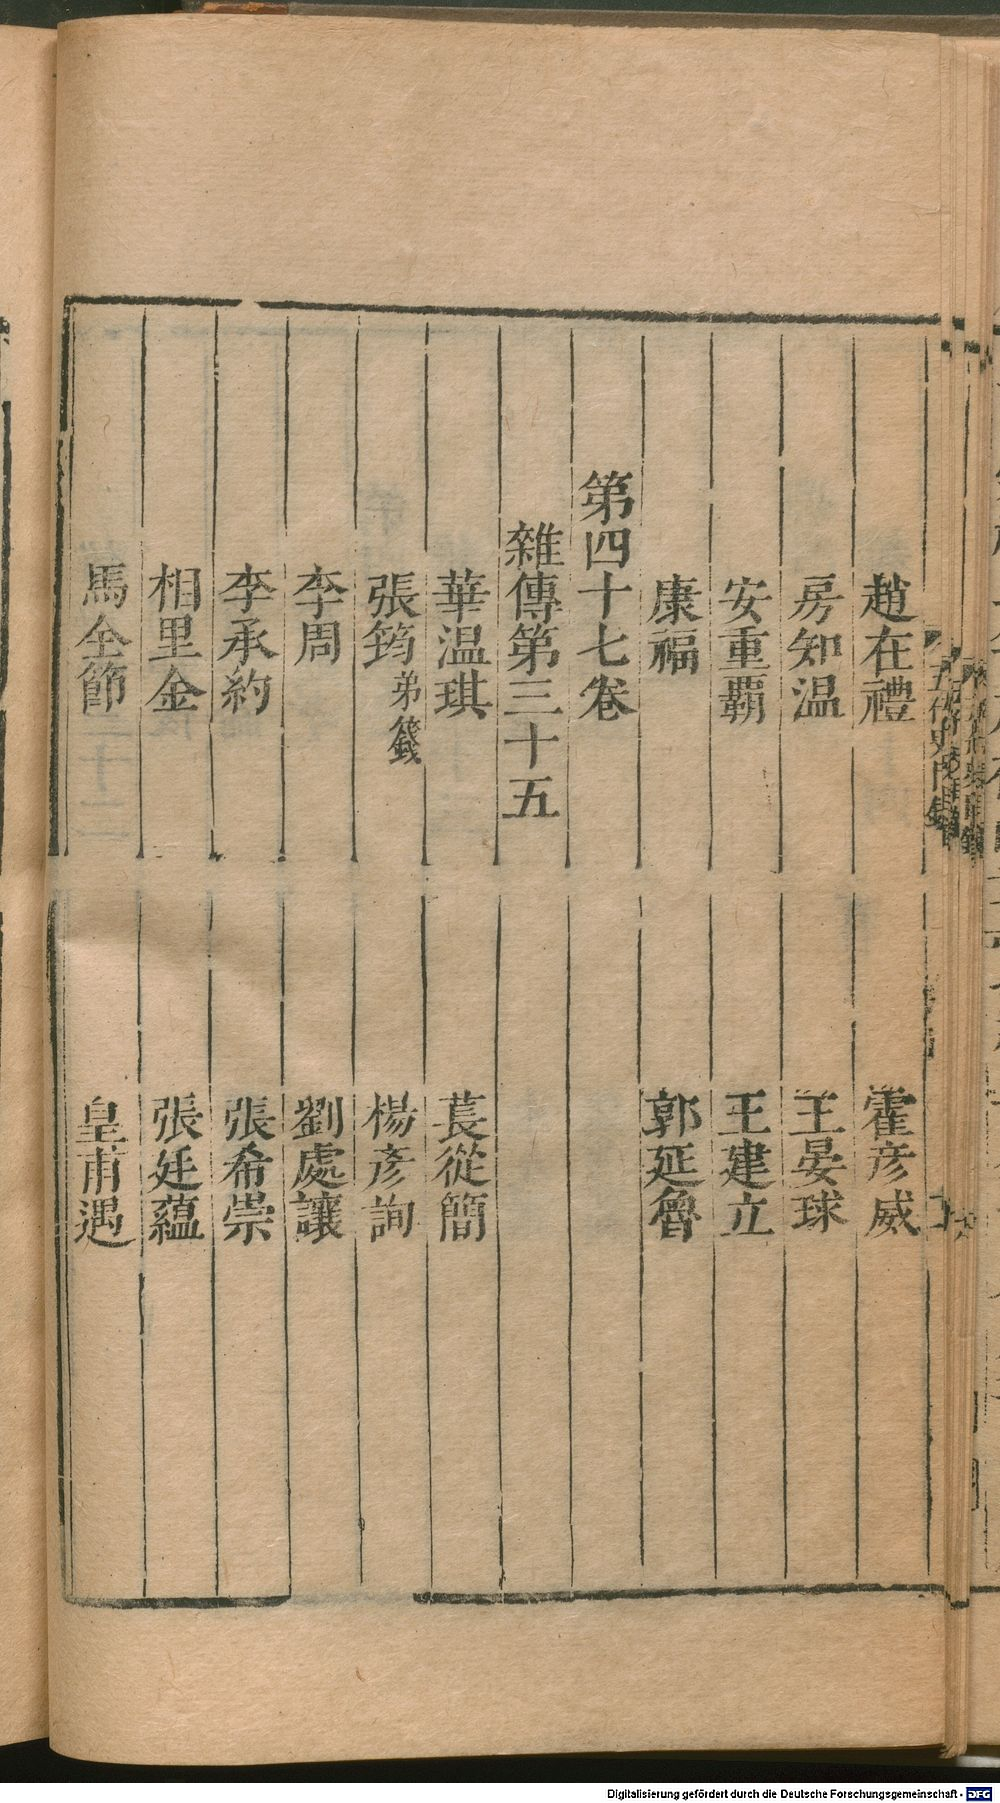 趙在禮 霍彦威
房知温 王晏球
安重覇 王建立
康福 郭延魯
第四十七卷
雜傳第三十五
華温琪 萇從簡
張筠 弟籛 楊彦詢
李周 劉處讓
李承約 張希崇
相里金 張廷藴
馬全節 皇甫遇
Digitalisierung gefördert durch die Deutsche Forschungsgemeinschaft - DFG